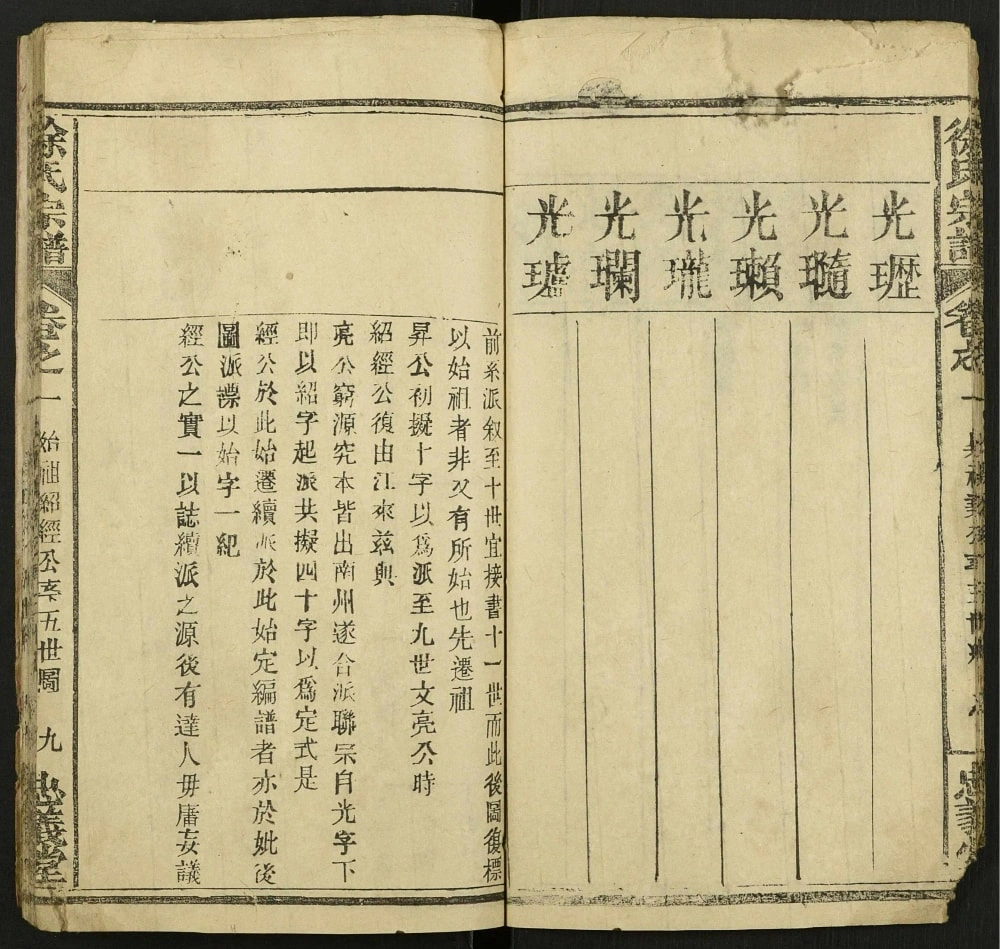 徐氏宗譜
卷之一
忠義堂
光瓑
光瓍
光瓎
光瓏
光瓓
光瓐
前系派叙至十世宜接書十一世而此後圖復標
以始祖者非又有所始也先遷祖
昇公初擬十字以為派至九世文亮公時
紹經公復由江來兹與
亮公窮源究本皆出南州遂合派聯宗自光字下
即以紹字起派共擬四十字以為定式是
經公於此始遷續派於此始定編譜者亦於妣後
圖派標以始字一紀
經公之實一以誌續派之源後有達人毋庸妄議
徐氏宗譜
卷之一
始祖紹經公至五世圖
九
忠義堂